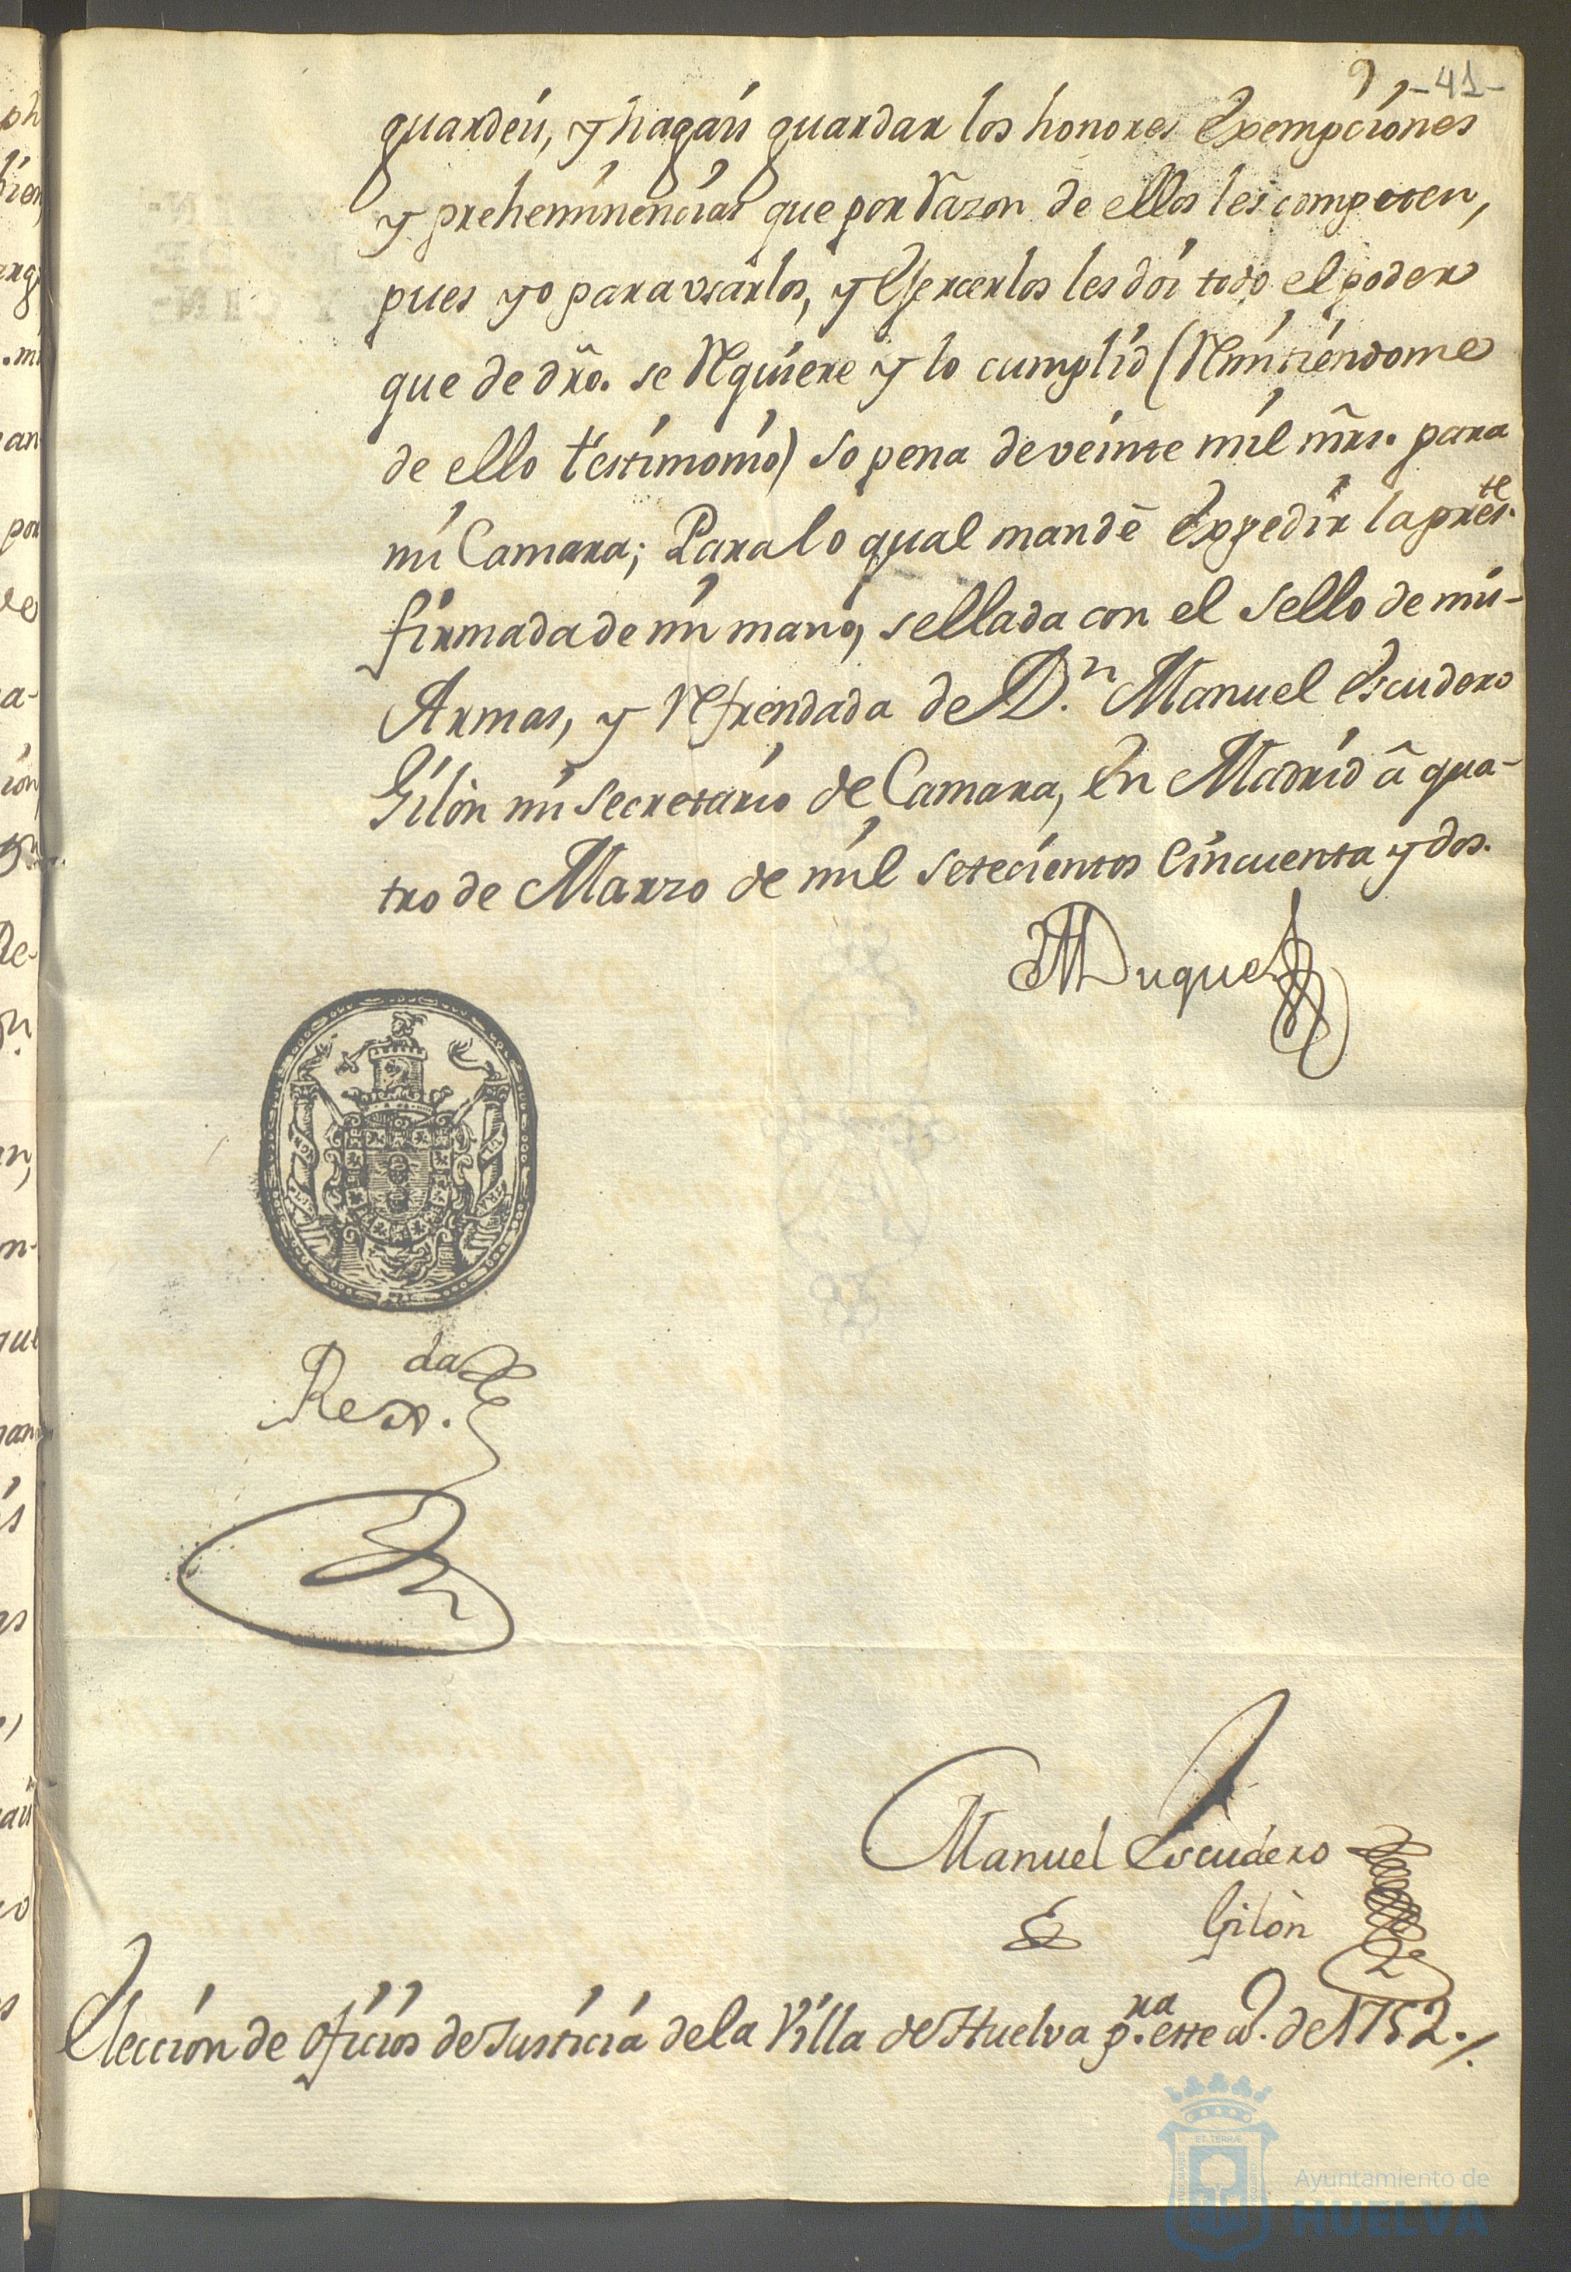 9, -41-
guardeis, y hagais guardar los honores exempciones
y preheminencias que por razon de ellos les competen,
pues yo para usarlos, y exercerlos les doi todo el poder
que de dr̃o. se requiere y lo cumplid (remitiendome
de ello testimonio) so pena de veinte mil mr̃s. para
mi Camara; Para lo qual mandè expedir la pres.te
firmada de mi mano, sellada con el sello de mis
Armas, y refrendada de D.n Manuel Escudero
Gilòn mi secretario de Camara, en Madrid â qua-
tro de Marzo de mil setecientos cincuenta y dos.
El Duque
Rex.da
Manuel Escudero
Gilòn
Eleccion de oficios de Justicia de la Villa de Huelva p.ra este a. de 1752./.
Ayuntamiento de
HUELVA